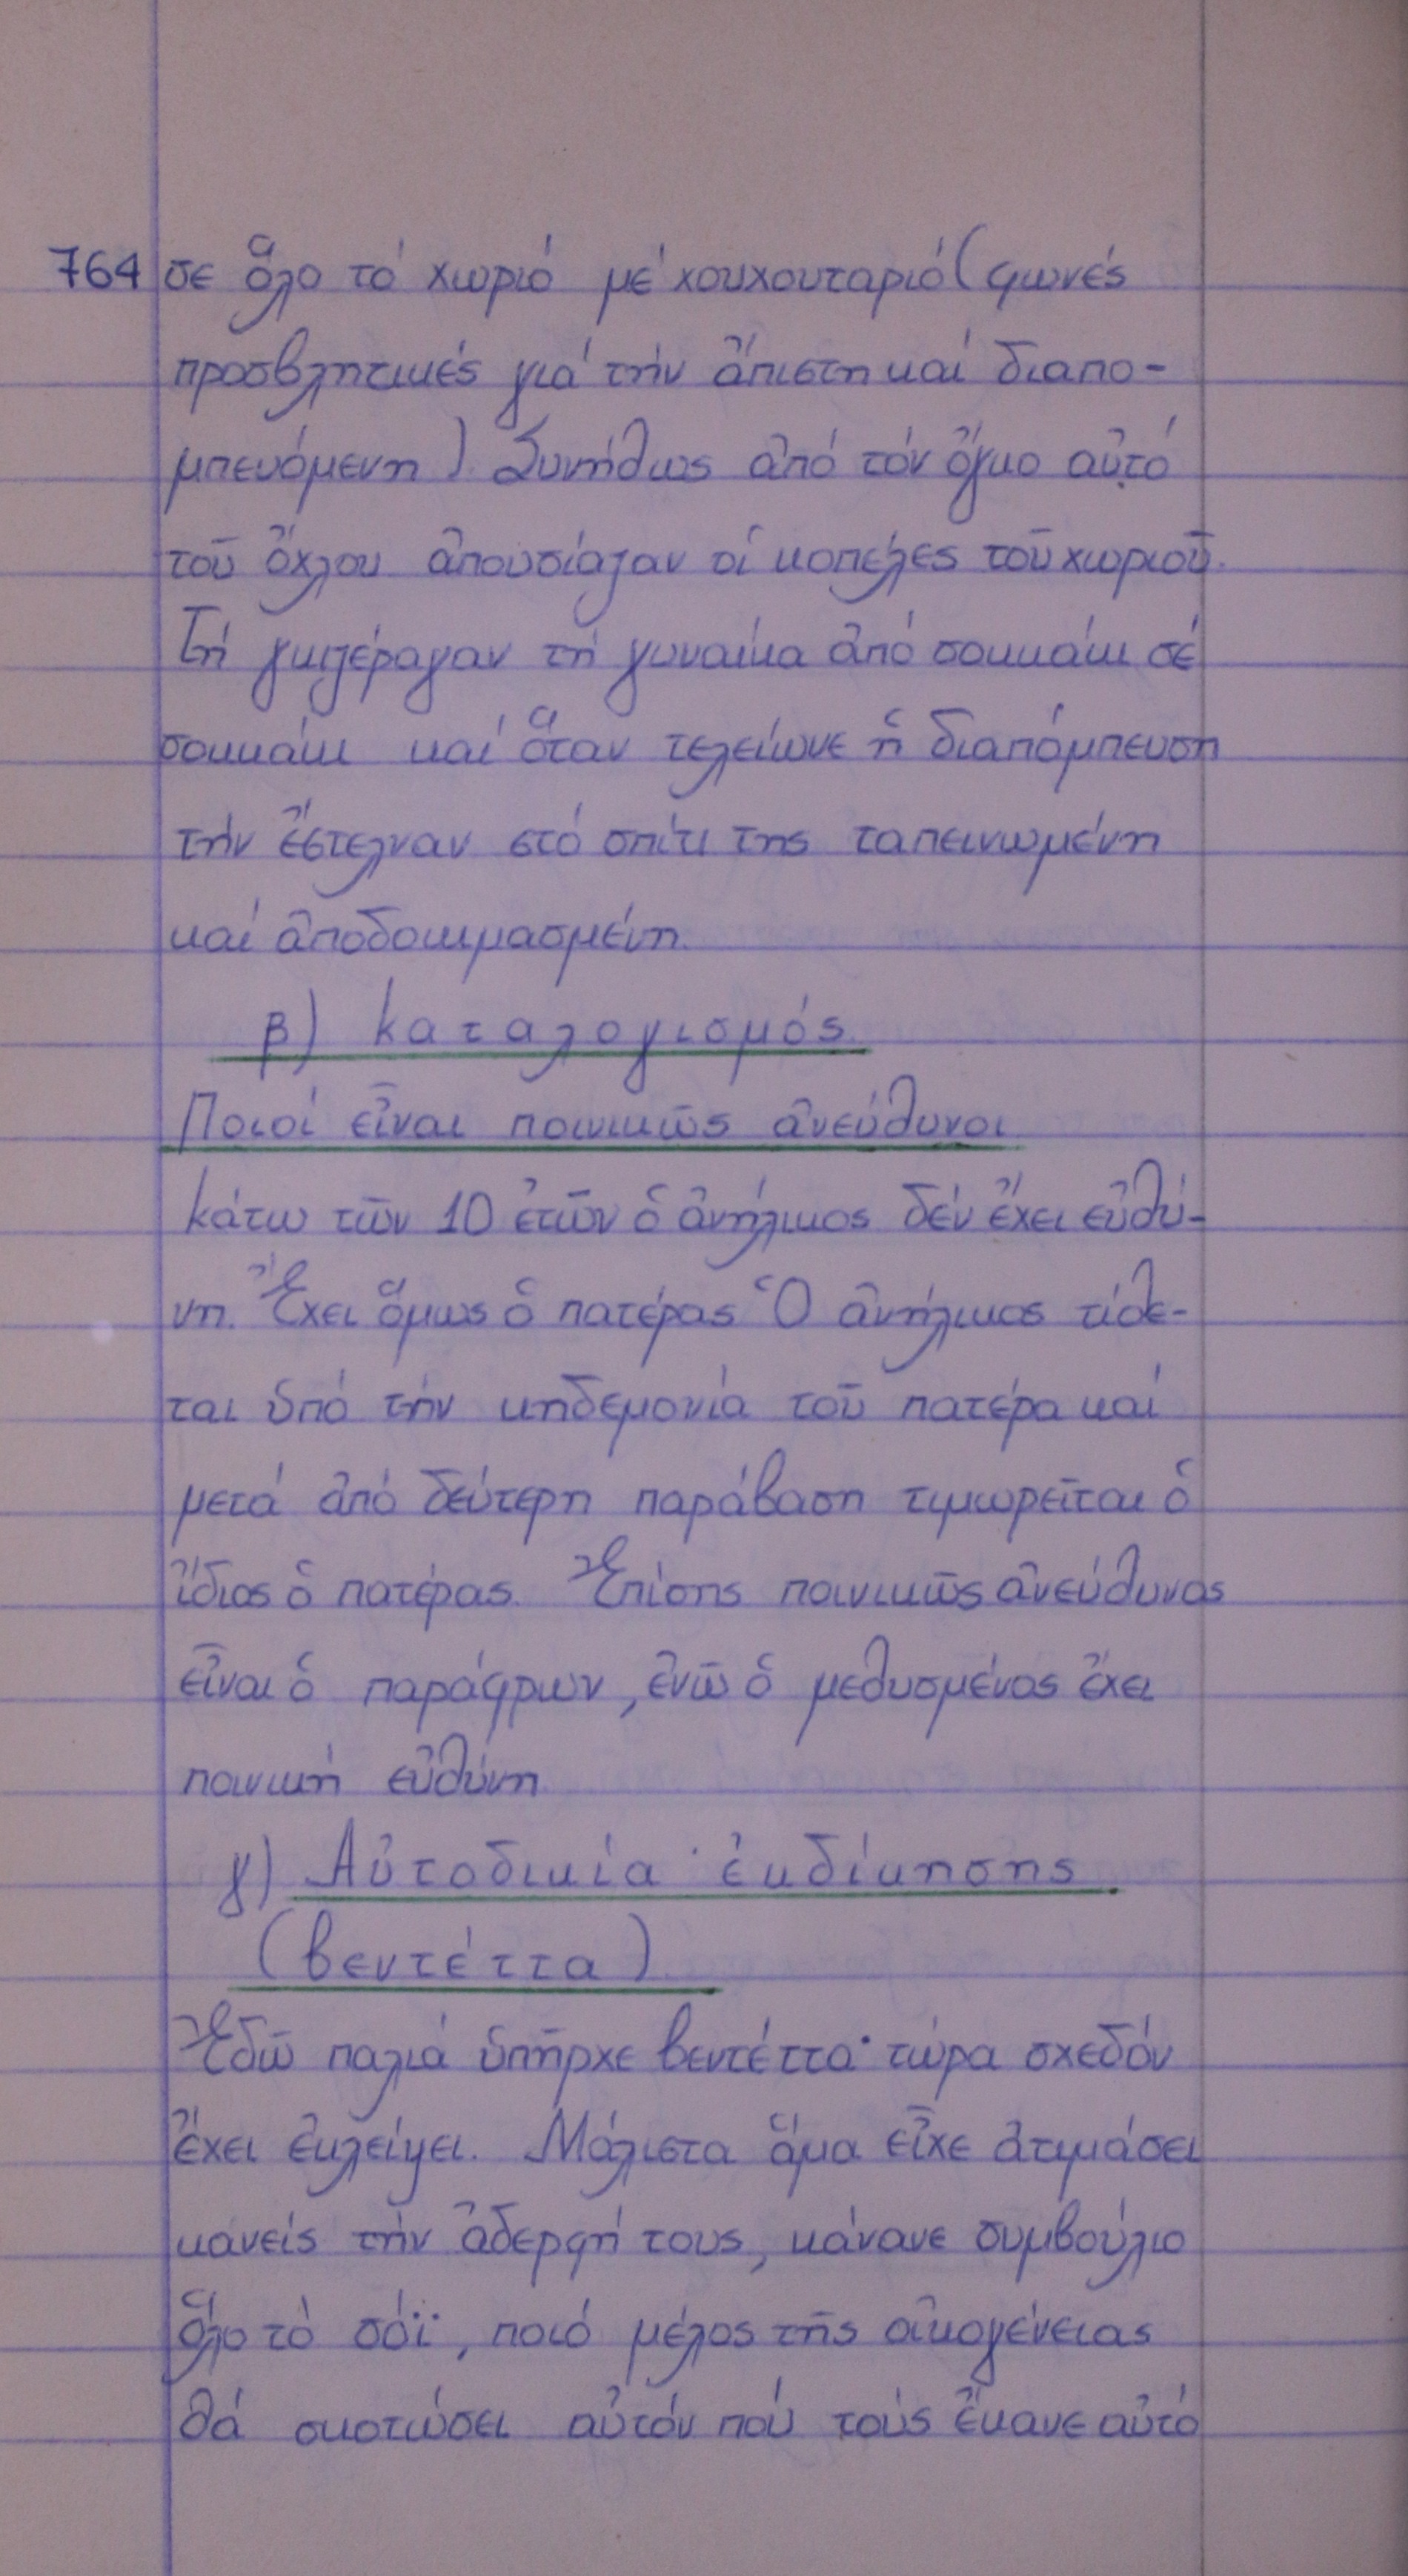 764 σε ὅλο τό χωριό μέ χουχουταριό (φωνές
προσβλητικές γιά τήν ἄπιστη καί διαπο-
μπευόμενη). Συνήθως ἀπό τόν ὄγκο αὐτό
τοῦ ὄχλου ἀπουσίαζαν οἱ κοπέλες τοῦ χωριοῦ.
Τή γκιζέραγαν τή γυναίκα ἀπό σοκκάκι σέ
σοκκάκι καί ὅταν τελείωνε ἡ διαπόμπευση
τήν ἔστελναν στό σπίτι της ταπεινωμένη
καί ἀποδοκιμασμένη.
β) Καταλογισμός
Ποιοί εἶναι ποινικῶς ἀνεύθυνοι
Κάτω τῶν 10 ἐτῶν ὁ ἀνήλικος δέν ἔχει εὐθύ-
νη. Ἔχει ὅμως ὁ πατέρας Ὁ ἀνήλικος τίθε-
ται ὑπό τήν κηδεμονία τοῦ πατέρα καί
μετά ἀπό δεύτερη παράβαση τιμωρεῖται ὁ
ἴδιος ὁ πατέρας. Ἐπίσης ποινικῶς ἀνεύθυνος
εἶναι ὁ παράφρων, ἐνῶ ὁ μεθυσμένος ἔχει
ποινική εὐθύνη.
γ) Αὐτοδικία ἐκδίκησης
(βεντέττα)
Ἐδῶ παλιά ὑπῆρχε βεντέττα· τώρα σχεδόν
ἔχει ἐκλείψει. Μάλιστα ἅμα εἶχε ἀτιμάσει
κανείς τήν ἀδερφή τους, κάνανε συμβούλιο
ὅλο τό σόϊ, ποιό μέλος τῆς οἰκογένειας
θά σκοτώσει αὐτόν πού τούς ἔκανε αὐτό